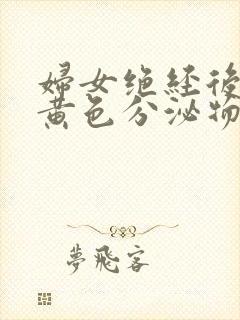 婦女绝経後
黄色分泌物
夢飛客